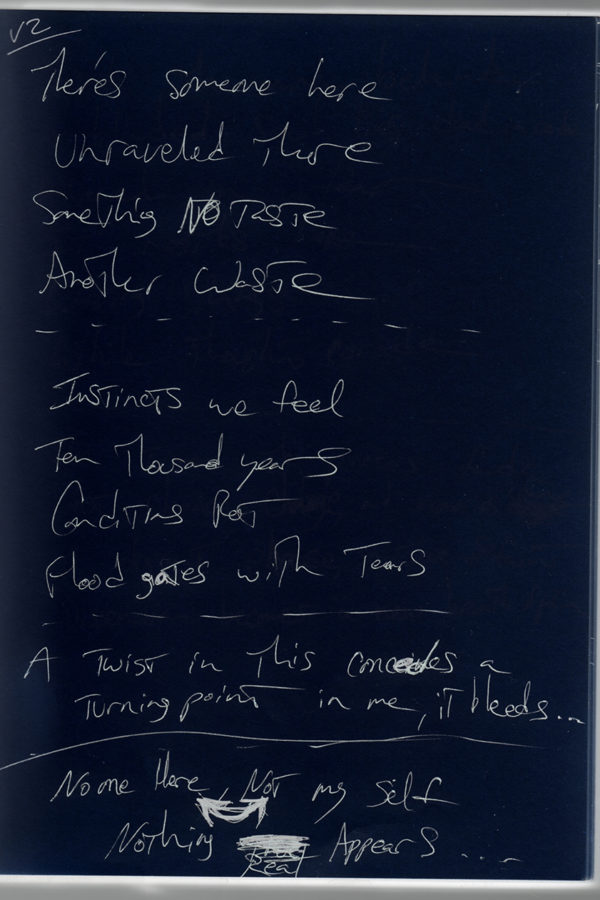 v2
There's someone here
Unraveled There
Something No Taste
Another Waste
Instincts we feel
Ten Thousand years
Conditions Rot
Flood gates with Tears
A Twist in This concedes a
Turning point in me, it bleeds...
No one Here, Not my self
Nothing Appears ....
Real